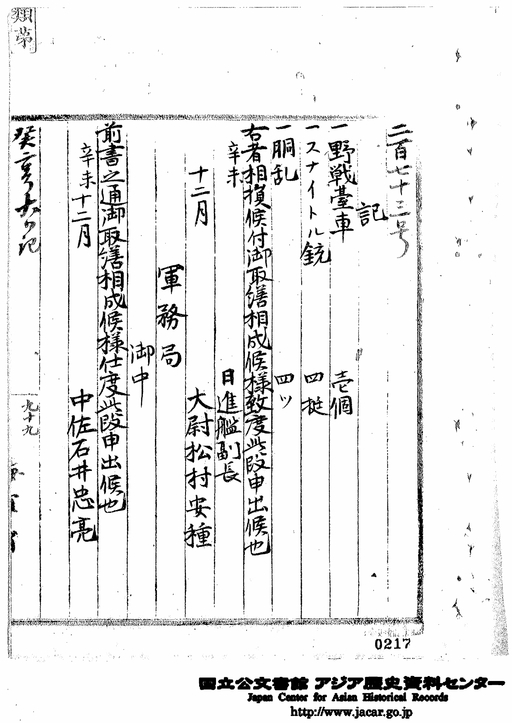 二百七十三号
記
一野戦臺車 壱個
一スナイトル銃 四挺
一胴乱 四ツ
右者相損候付御取繕相成候様致度此段申出候也
辛未
十二月
日進艦副長
大尉松村安種
軍務局
御中
前書之通御取繕相成候様仕度此段申出候也
辛未十二月
中佐石井忠亮
九十九
0217
国立公文書館 アジア歴史資料センター
Japan Center for Asian Historical Records
http://www.jacar.go.jp